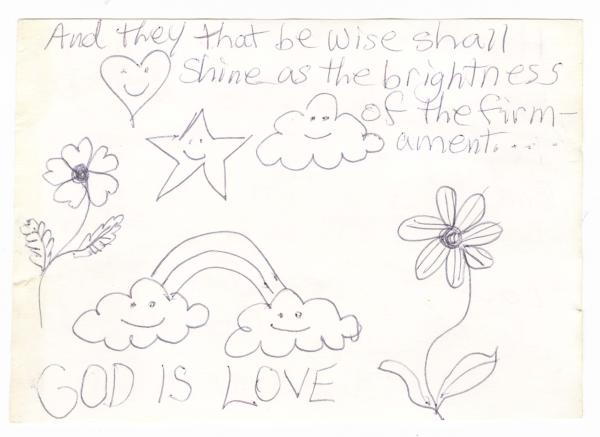 And they that be wise shall
shine as the brightness
of the firm-
ament....
GOD IS LOVE